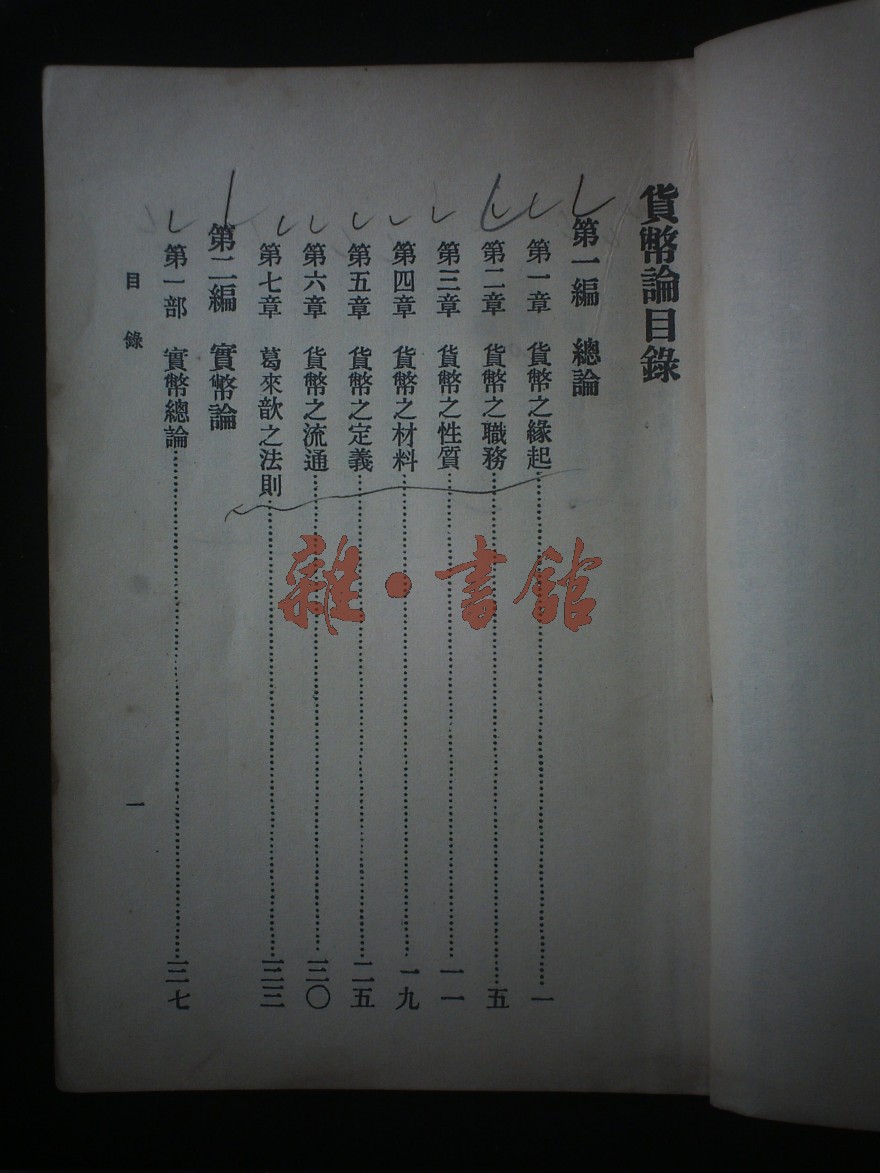 貨幣論目錄
第一編 總論
第一章 貨幣之緣起……一
第二章 貨幣之職務……五
第三章 貨幣之性質……一一
第四章 貨幣之材料……一九
第五章 貨幣之定義……二五
第六章 貨幣之流通……三〇
第七章 葛來歆之法則……三三
第二編 實幣論
第一部 實幣總論……三七
目錄
一
雜·書館